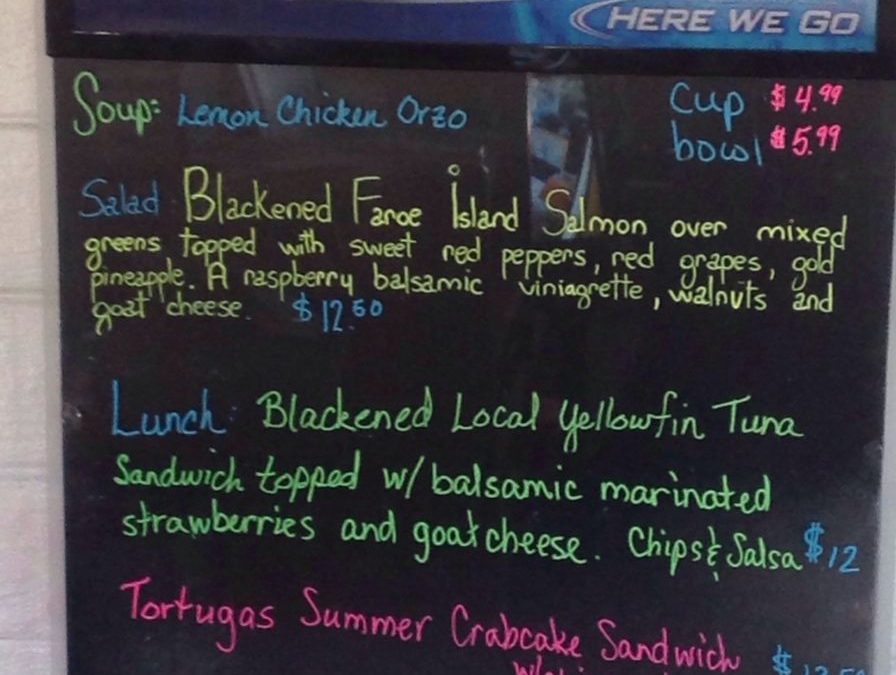 HERE WE GO
Soup: Lemon Chicken Orzo Cup $4.99
bowl $5.99
Salad: Blackened Faroe Island Salmon over mixed
greens topped with sweet red peppers, red grapes, gold
pineapple. A raspberry balsamic viniagrette, walnuts and
goat cheese. $12.50
Lunch: Blackened Local Yellowfin Tuna
Sandwich topped w/ balsamic marinated
strawberries and goat cheese. Chips & Salsa $12
Tortugas Summer Crabcake Sandwich